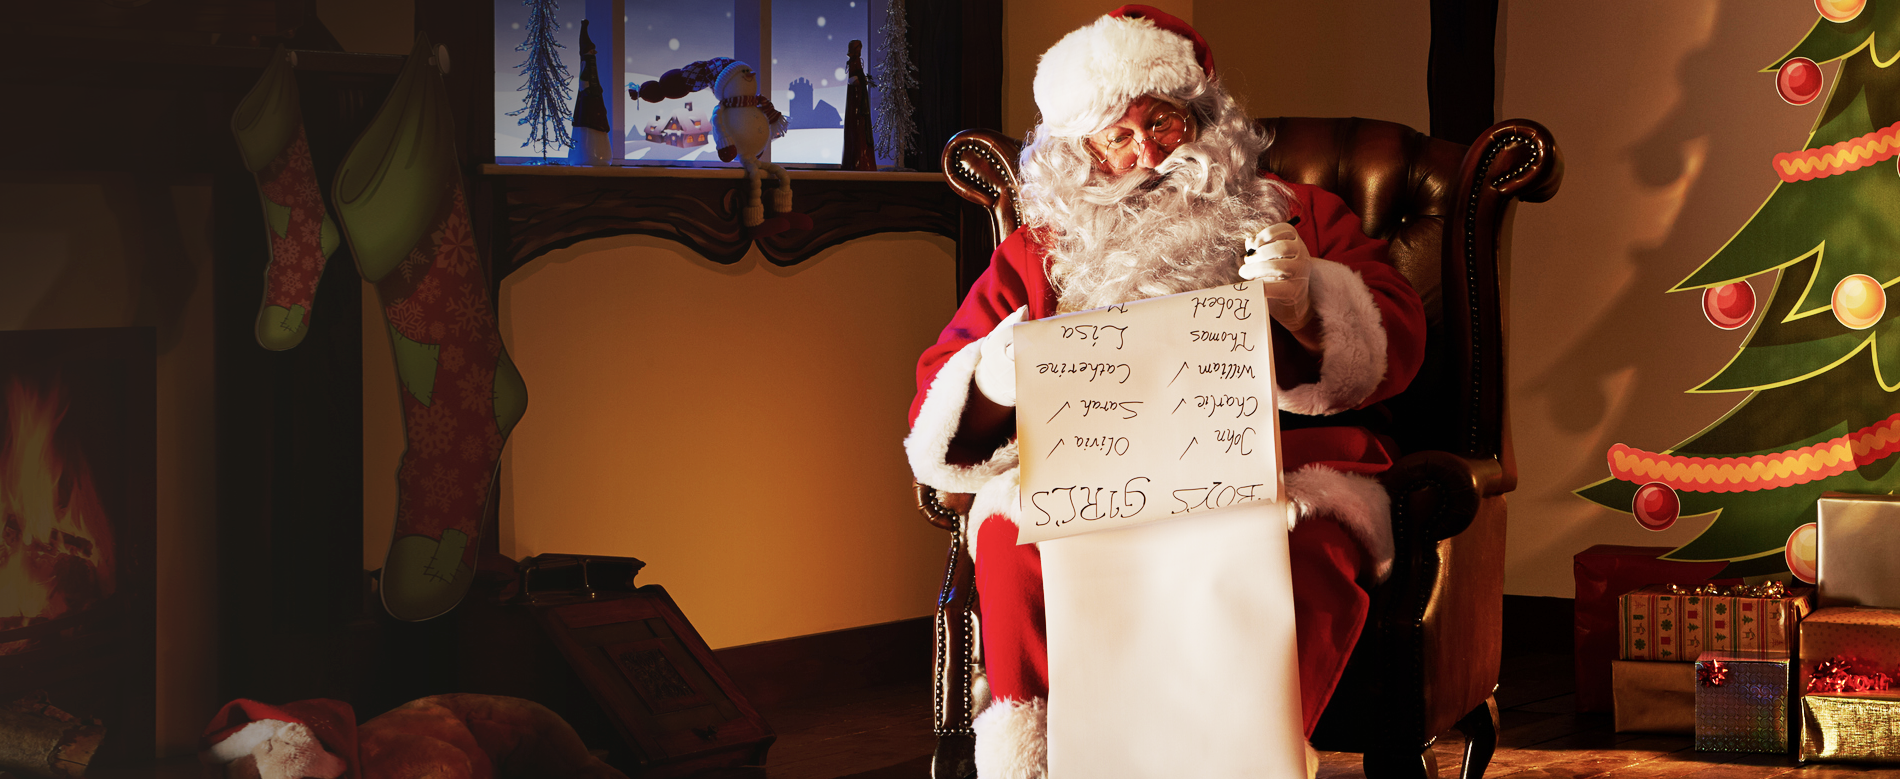 BOYS GIRLS
John ✓ Olivia ✓
Charlie ✓ Sarah ✓
William ✓ Catherine
Thomas Lisa
Robert